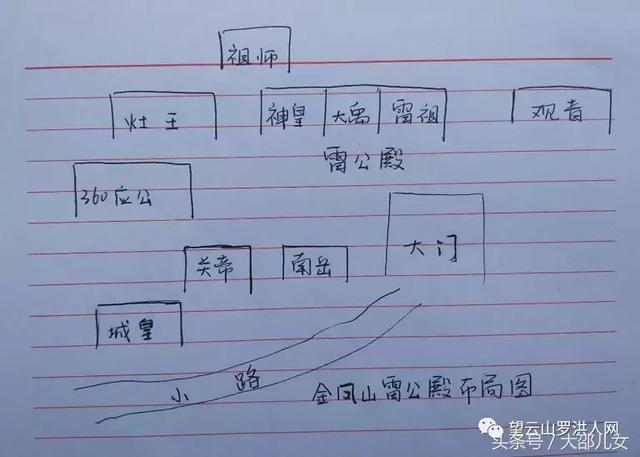 祖师
灶王
神皇 大禹 雷祖
观音
雷公殿
360应公
大门
关帝 南岳
城皇
小路
金凤山雷公殿布局图
望云山罗洪人网
头条号/大邵儿女